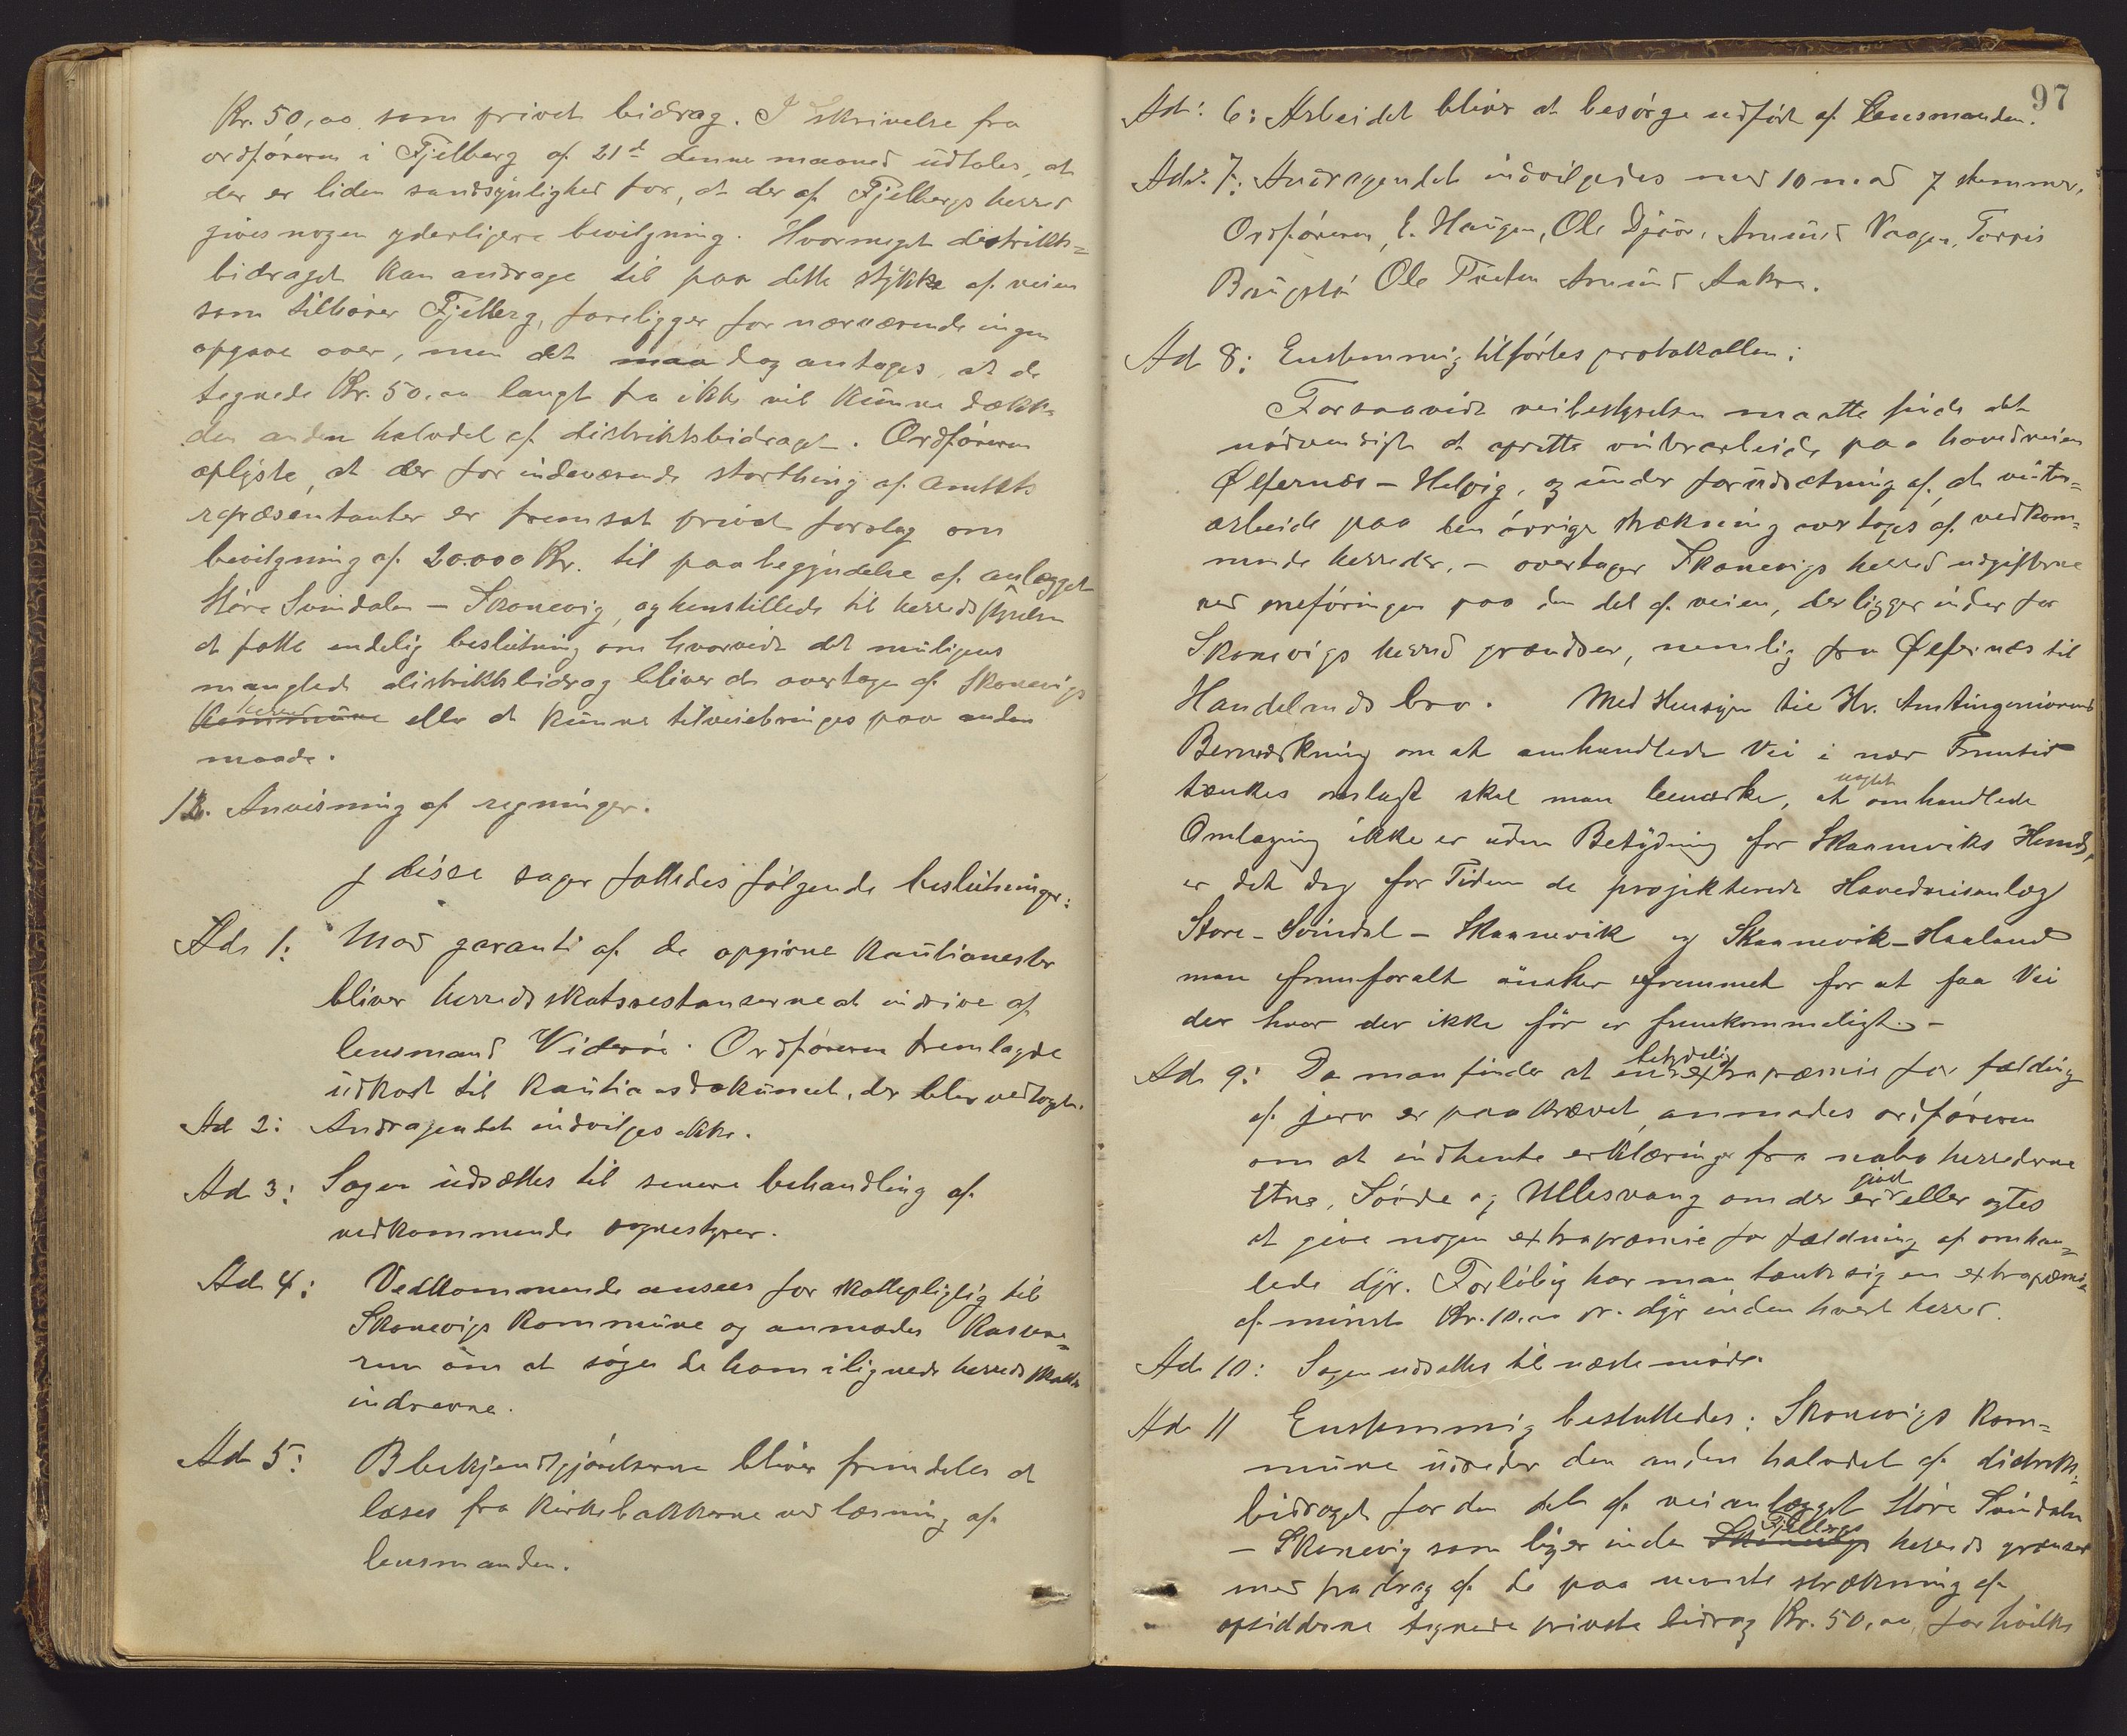 Kr. 50,00 som privat bidrag. I skrivelse fra
ordføreren i Fjelberg af 21de denne maaned udtales, at
der er liden sandsynlighed for, at der af Fjelbergs herred
gives nogen yderligere bevilgning. Hvormeget distrikts=
bidraget kan andrage til paa dette stykke af veien
som tilhører Fjelberg, foreligger for nærværende ingen
opgave over, men det maa dog antages, at de
tegnede Kr. 50,00 langt fra ikke vil kunne dække
den anden halvdel af distriktsbidraget. Ordføreren
oplyste, at der for indeværende storthing af amtets
repræsentanter er fremsat privat forslag om
bevilgning af 20.000 Kr. til paabegyndelse af anlægget
Støre Svindalen – Skonevig, og henstillede til herredsstyrelsen
at fatte endelig beslutning om hvorvidt det muligens
manglede distriktsbidrag bliver at overtage af Skonevigs
herred
Kommune eller at kunne tilveiebringes paa anden
maade.
12. Anvisning af regninger.
I disse sager fattedes følgende beslutninger:
Ad. 1: Mod garanti af de opgivne kautionester
bliver herredsskatsrestanserne at inddrive af
lensmand Viderøe. Ordføreren fremlagde
udkast til kautionsdokument, der blev vedtaget.
Ad 2: Andragendet indvilges ikke.
Ad 3: Sagen udsættes til senere behandling af
vedkommende sognestyrer.
Ad 4: Vedkommende ansees for skattepligtig til
Skonevigs kommune og anmodes Kassere=
ren om at søge de ham ilignede herredsskatte
inddrevne.
Ad 5: Bekjendtgjørelserne bliver fremdeles at
læses fra kirkebakkerne ved læsning af
lensmanden.
97
Ad: 6: Arbeidet bliver at besørge udført af lensmanden.
Ad. 7: Andragendet indvilgedes med 10 mod 7 stemmer,
Ordføreren, E. Haugen, Ole Djøør, Amund Vaagen, Torris
Baugstø Ole Tveten Amund Aakre.
Ad 8: Enstemmig tilførtes protokollen:
Forsaavidt veibestyrelsen maatte finde det
nødvendigt at oprette vinterarbeide paa hovedveien
Ølfernæs – Helvig, og under forudsætning af, at vinter=
arbeide paa den øvrige strækning overtages af vedkom=
mende herreder, – overtager Skonevigs herred udgifterne
ved sneføringen paa den del af veien, der ligger inden for
Skonevigs herreds grændser, nemlig fra Ølfernæs til
Handelands bro. Med Hensyn til Hr. Amtingeniørens
Bemærkning om at omhandlede Vei i nær Fremtid
uagtet
tænkes omlagt skal man bemærke, at omhandlede
Omlægning ikke er uden Betydning for Skaaneviks Herred,
er det dog for Tiden de projekterede Hovedveisanlæg
Store-Svindal – Skaanevik og Skaanevik–Haaland
man fremforalt ønsker fremmet for at faa Vei
der hvor der ikke før er fremkommeligt. –
betydelig
Ad. 9: Da man finder at en extrapræmie for fælding
af jerv er paakrævet, anmodes ordføreren
om at indhente erklæringer fra naboherrederne
givet
Etne, Søvde og Ullesvang om der er eller agtes
at give nogen extrapræmie for fældning af omhan=
lede dyr. Forløbig har man tænkt sig en extrapræmie
af mindst Kr. 10,00 pr. dyr inden hvert herred.
Ad. 10: Sagen udsættes til næste møde.
Ad. 11 Enstemmig besluttedes: Skonevigs kom=
mune udreder den anden halvdel af distrikts=
bidraget for den del af veianlægget Støre Svindalen
Fjelbergs
– Skonevig som ligger inden Skonevigs herreds grænser
med fradrag af de paa nævnte strækning af
opsidderne tegnede private bidrag Kr. 50,00, for hvilke